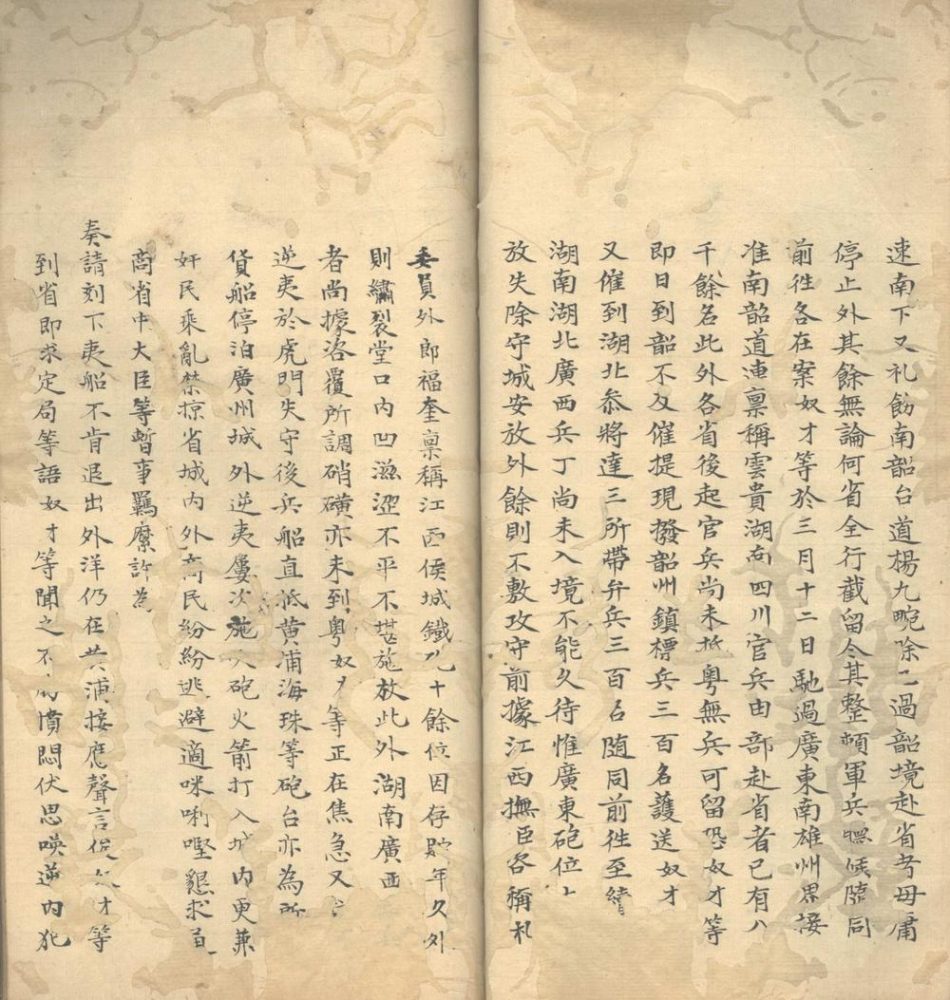 速南下又札飭南韶台道楊九畹除已過韶境赴省者毋庸
停止外其餘無論何省全行截留令其整頓軍兵聽候隨同
前徃各在案奴才等於三月十二日馳過廣東南雄州界接
准南韶道連禀稱雲貴湖南四川官兵由部赴省者已有八
千餘名此外各省後起官兵尚未抵粤無兵可留恐奴才等
即日到韶不及催提現撥韶州鎮標兵三百名護送奴才
又催到湖北叅將達三所帶弁兵三百名随同前徃至續
湖南湖北廣西兵丁尚未入境不能久待惟廣東砲位
放失除守城安放外餘則不敷攻守前據江西撫臣咨稱札
委員外郎福奎禀稱江西俟城鐵砲十餘位因存貯年久外
則繡裂堂口內凹滋澀不平不堪施放此外湖南廣西
者尚據洛覆所調硝磺亦未到粤奴才等正在焦急又
逆夷於虎門失守後兵船直抵黄浦海珠等砲台亦為所
貨船停泊廣州城外逆夷屢次施火砲火箭打入城内更兼
奸民乘亂禁掠省城内外商民紛紛逃避適咪唎𠼤懇求
商省中大臣等暫事羈縻許為
奏請刻下夷船不肯退出外洋仍在黄浦接應聲言俟奴才等
到省即求定局等語奴才等聞之不勝憤悶伏思㗸逆内犯